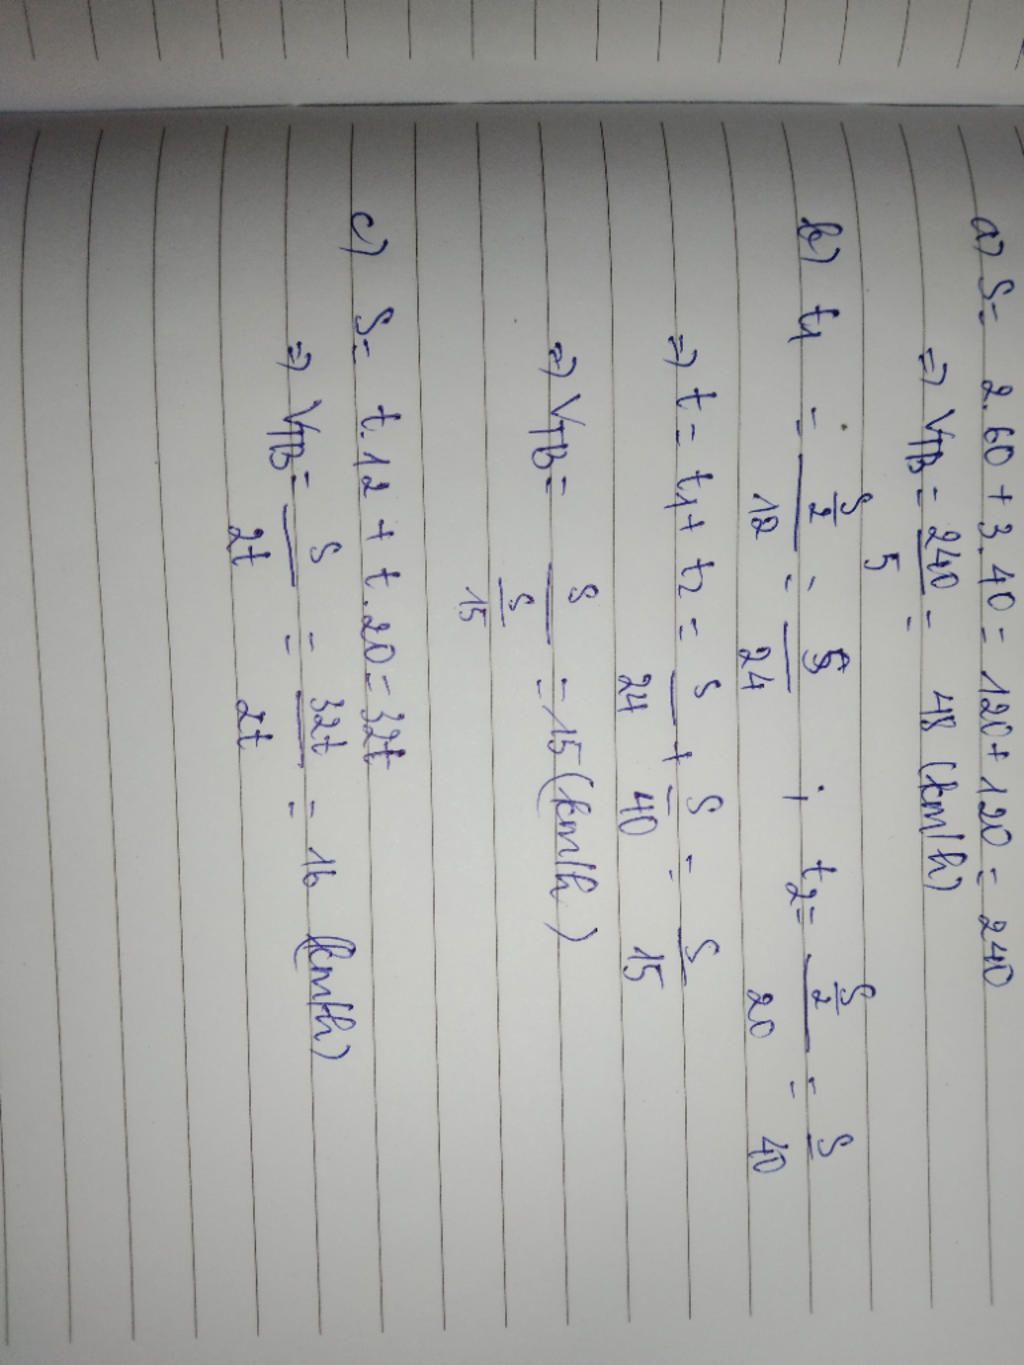 a) S = 2.60 + 3.40 = 120 + 120 = 240
=> VTB = 240/5 = 48 (km/h)
b) t1 = (S/2)/12 = S/24 ; t2 = (S/2)/20 = S/40
=> t = t1 + t2 = S/24 + S/40 = S/15
=> VTB = S/(S/15) = 15 (km/h)
c) S = t.12 + t.20 = 32t
=> VTB = S/2t = 32t/2t = 16 (km/h)